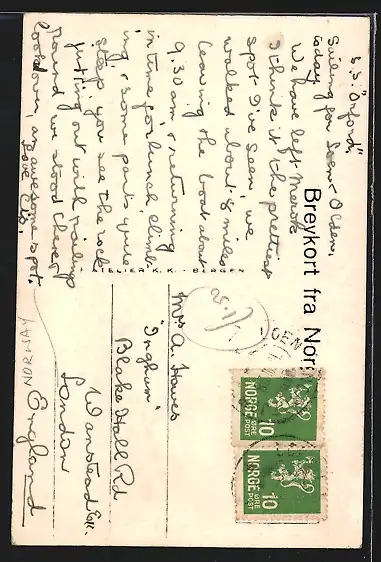 S.S. "Orford,"
Sailing for Loen - Olden,
today.
We have left Merok
I think it the prettiest
spot I've seen, we
walked about 8 miles
leaving the boat about
9.30 am & returning
in time for lunch, climb-
ing, & some parts quite
steep, you see the rock
jutting out with railings
round we stood there &
looked down, an awesome spot.
Love
Breykort fra Norge
ATELIER K.K. - BERGEN
Mrs A. Hawes
"Ingham"
Blake Hall Rd
Wanstead Ex.
London
England
OEN
NORGE
ØRE
POST
10
NORGE
ØRE
POST
10